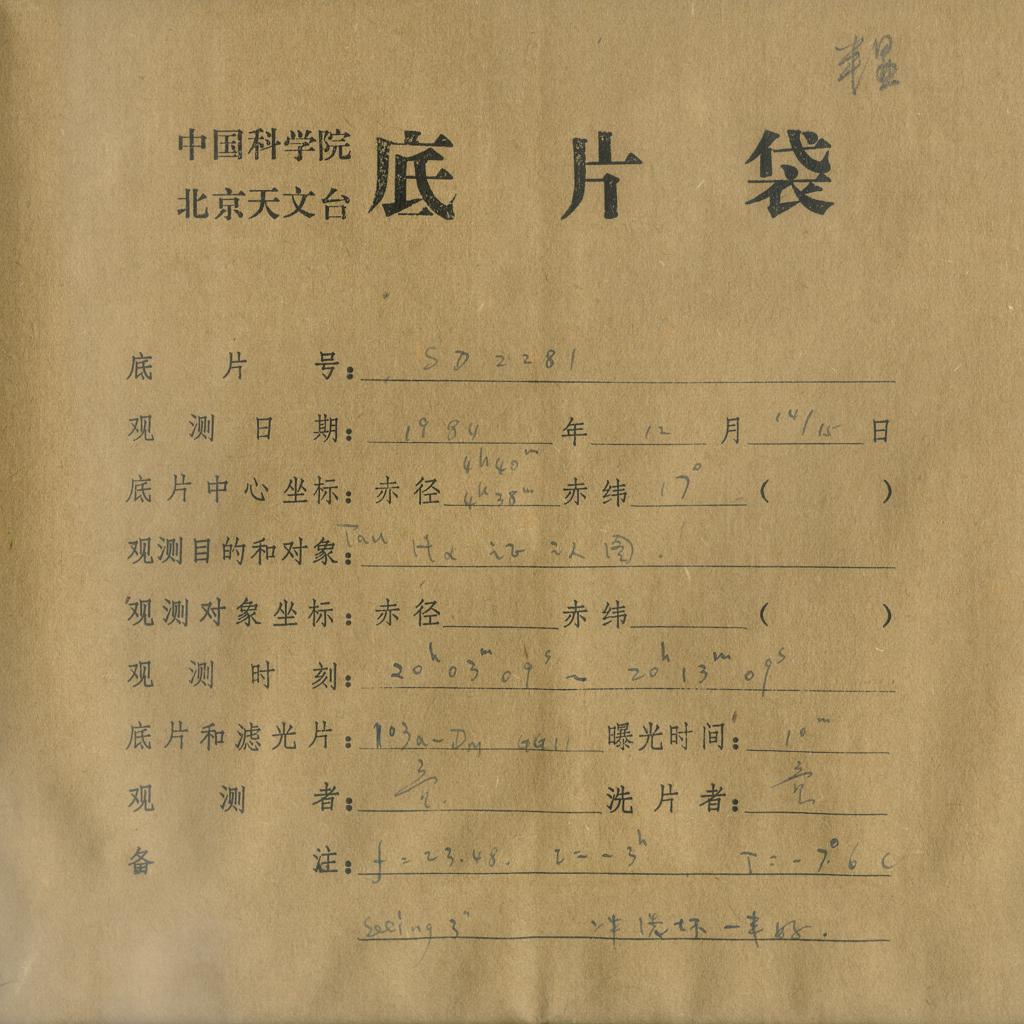 中国科学院
北京天文台
底片袋
底片号: SD2281
观测日期: 1984年12月14/15日
4h40m
底片中心坐标: 赤径 4h38m 赤纬 17° ( )
观测目的和对象: Tau Hα 证认图.
观测对象坐标: 赤径 赤纬 ( )
观测时刻: 20h03m09s ~ 20h13m09s
底片和滤光片: 103a-D GG11 曝光时间: 10m
观测者: 洗片者:
备注: f=23.48. t=-3h T=-7°.6 C
Seeing 3" 冲洗坏一半好.